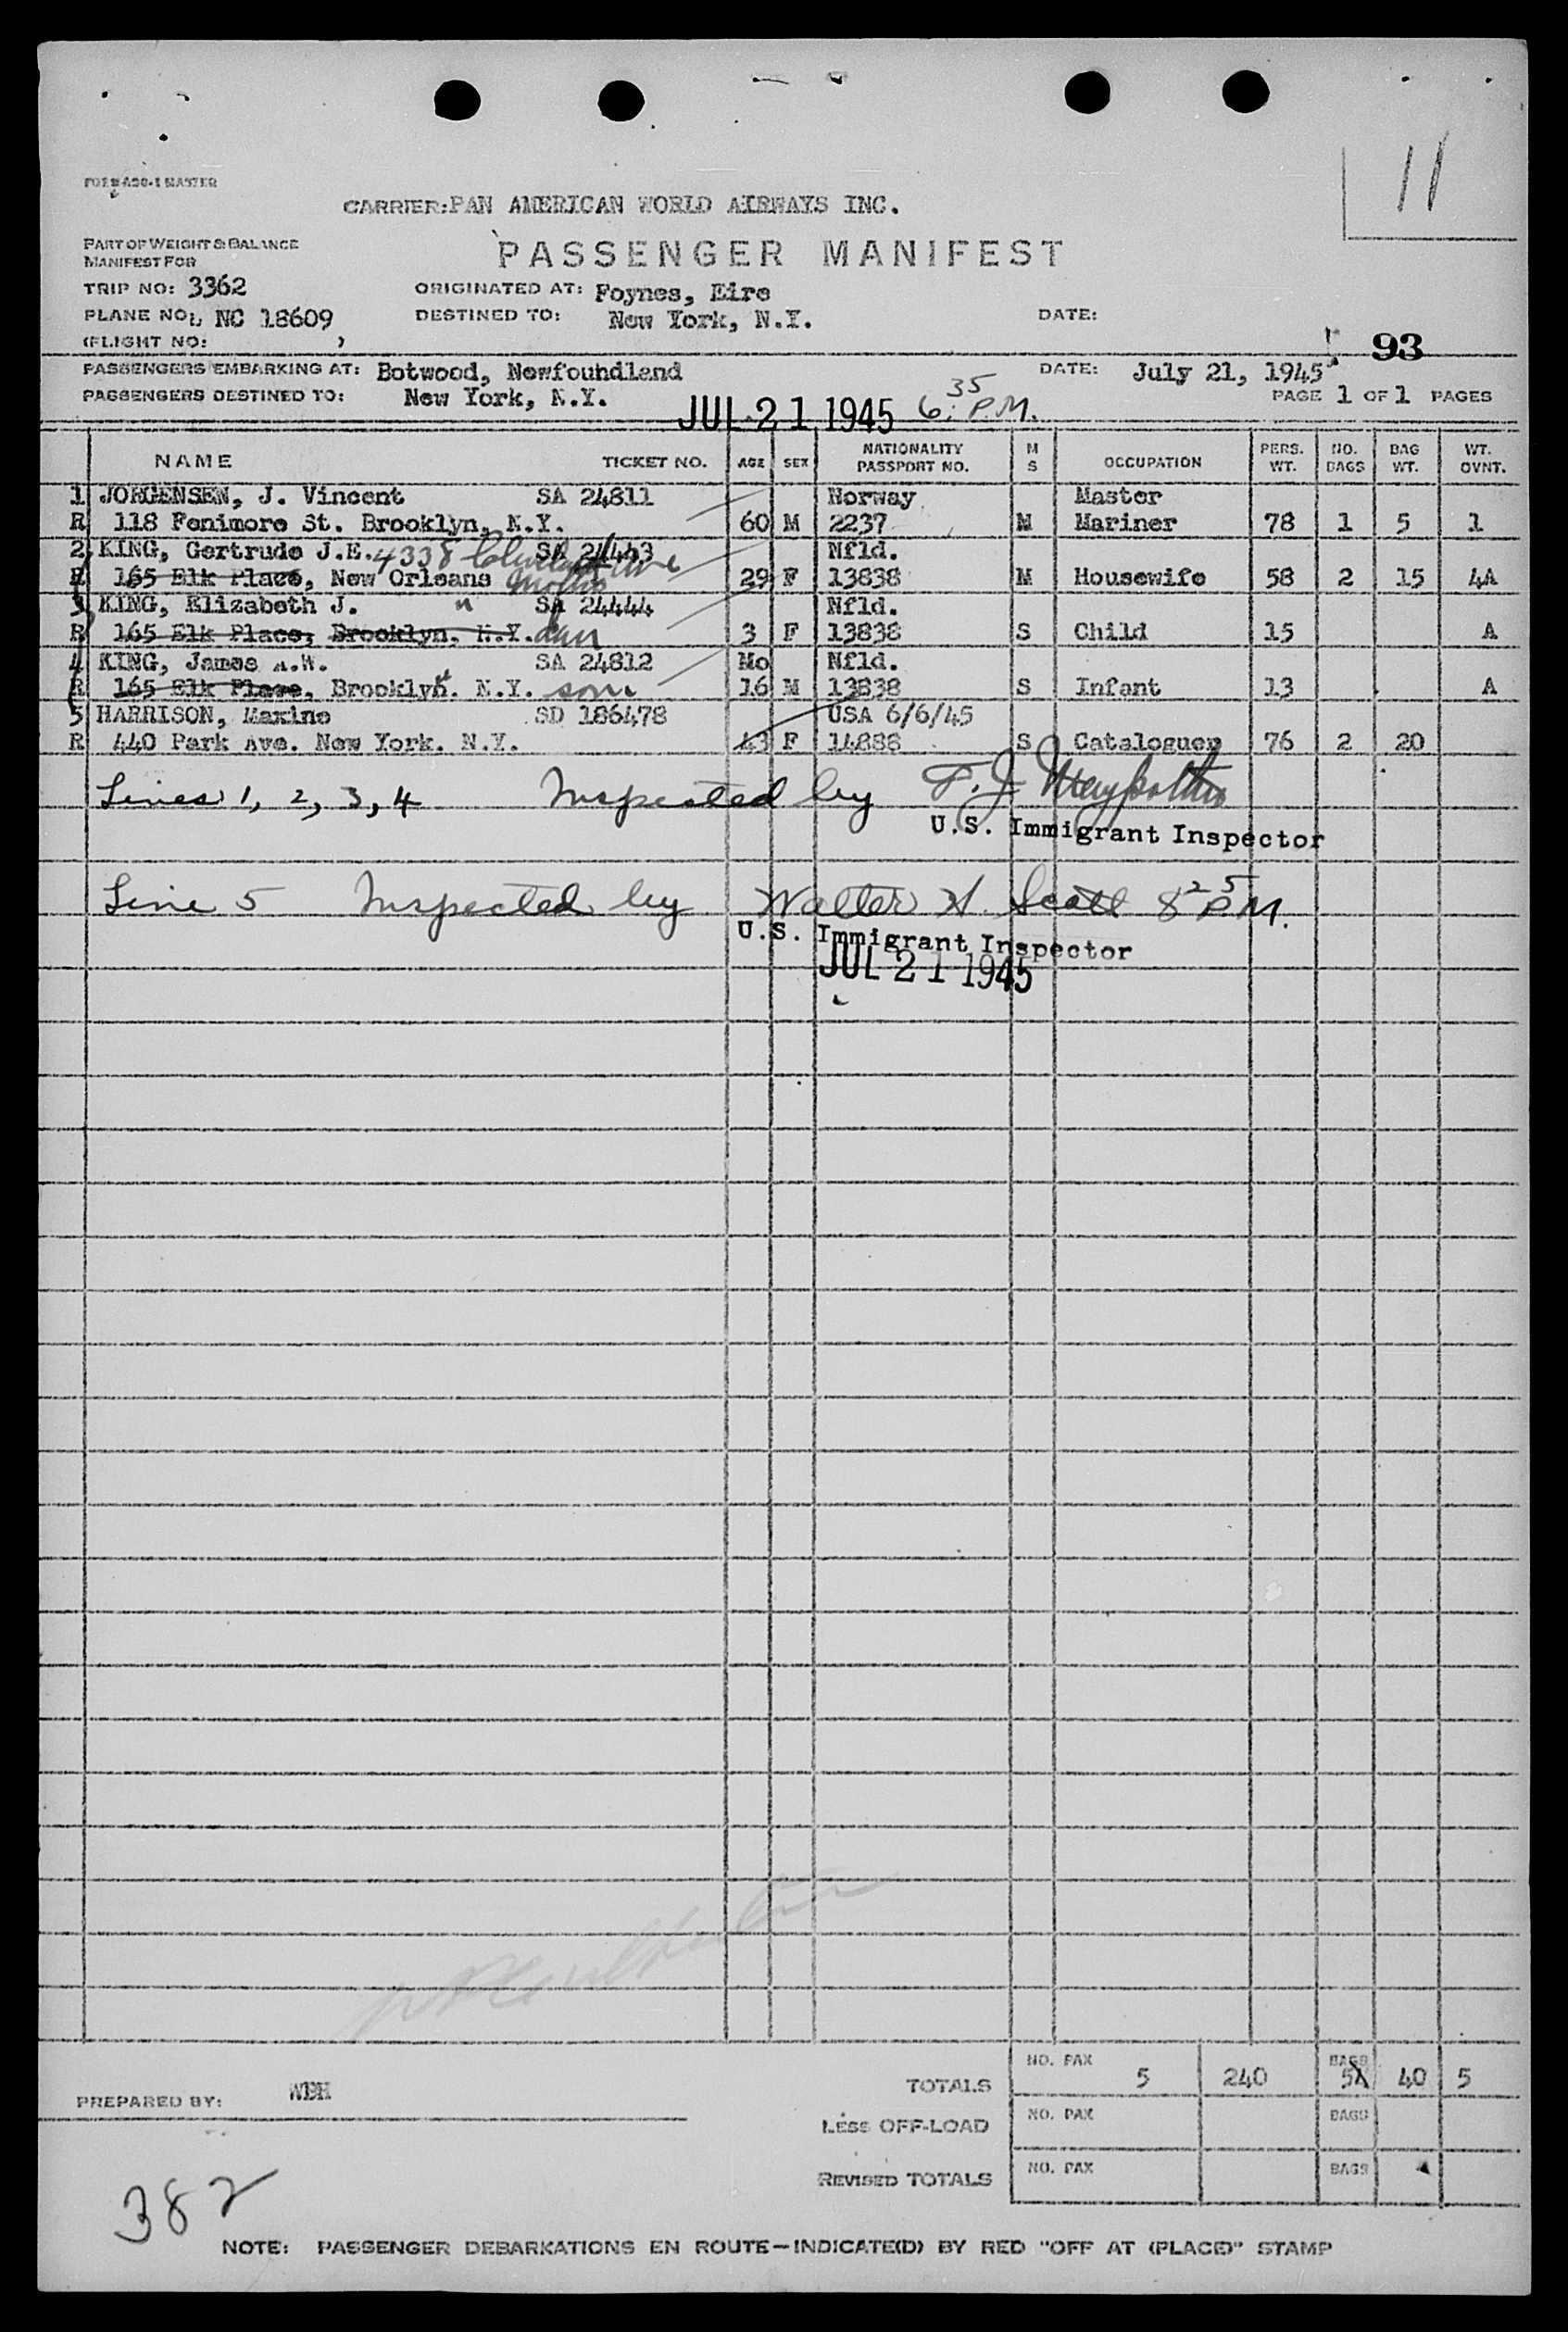 11
FORM A30-1 MASTER
CARRIER: PAN AMERICAN WORLD AIRWAYS INC.
PART OF WEIGHT & BALANCE
MANIFEST FOR
PASSENGER MANIFEST
TRIP NO: 3362 ORIGINATED AT: Foynes, Eire
PLANE NO. NC 18609 DESTINED TO: New York, N.Y. DATE:
(FLIGHT NO: )
93
PASSENGERS EMBARKING AT: Botwood, Newfoundland DATE: July 21, 1945
PASSENGERS DESTINED TO: New York, N.Y. JUL 21 1945 6:35 P.M. PAGE 1 OF 1 PAGES
NAME TICKET NO. AGE SEX NATIONALITY PASSPORT NO. M S OCCUPATION PERS. WT. NO. BAGS BAG WT. WT. OVNT.
1 JORGENSEN, J. Vincent SA 24811 Norway Master
R 118 Fenimore St. Brooklyn, N.Y. 60 M 2237 M Mariner 78 1 5 1
2 KING, Gertrude J.E. 4338 Cleveland Ave SA 24443 Nfld.
R 165 Elk Place, New Orleans Mother 29 F 13838 M Housewife 58 2 15 4A
3 KING, Elizabeth J. " SA 24444 Nfld.
R 165 Elk Place, Brooklyn. N.Y. dau 3 F 13838 S Child 15 A
4 KING, James A.W. SA 24812 Mo Nfld.
R 165 Elk Place, Brooklyn. N.Y. " son 16 M 13838 S Infant 13 A
5 HARRISON, Maxine SD 186478 USA 6/6/45
R 440 Park Ave. New York. N.Y. 43 F 14888 S Cataloguer 76 2 20
Lines 1, 2, 3, 4 Inspected by F. J.
U.S. Immigrant Inspector
Line 5 Inspected by Walter H. Scott 8 25 P.M.
U.S. Immigrant Inspector
JUL 21 1945
TOTALS NO. PAX 5 240 BAGS 5 40 5
PREPARED BY: WBH
LESS OFF-LOAD NO. PAX BAGS
REVISED TOTALS NO. PAX BAGS
382
NOTE: PASSENGER DEBARKATIONS EN ROUTE—INDICATE(D) BY RED "OFF AT (PLACE)" STAMP